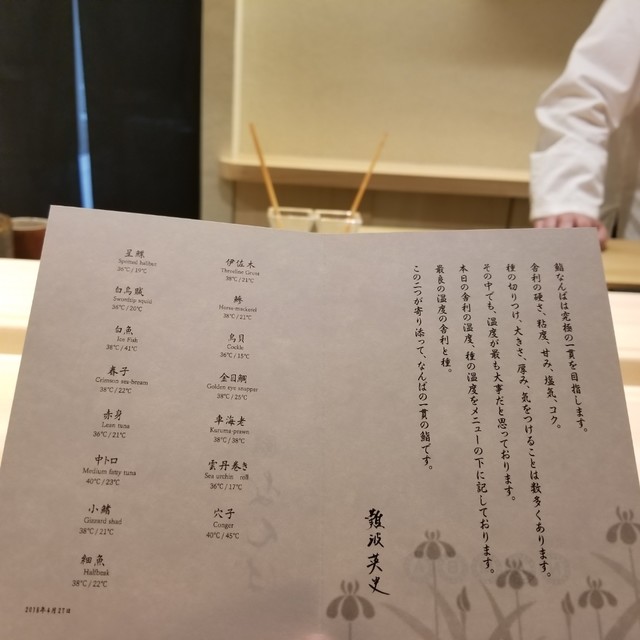 鮨なんばは究極の一貫を目指します。
舎利の硬さ、粘度、甘み、塩気、コク。
種の切りつけ、大きさ、厚み、気をつけることは数多くあります。
その中でも、温度が最も大事だと思っております。
本日の舎利の温度、種の温度をメニューの下に記しております。
最良の温度の舎利と種。
この二つが寄り添って、なんばの一貫の鮨です。
難波英史
伊佐木
Threeline Grunt
38℃/21℃
鯵
Horse-mackerel
38℃/21℃
鳥貝
Cockle
36℃/15℃
金目鯛
Golden eye snapper
38℃/25℃
車海老
Kuruma-prawn
38℃/38℃
雲丹巻き
Sea urchin roll
36℃/17℃
穴子
Conger
40℃/45℃
星鰈
Spotted halibut
36℃/19℃
白烏賊
Swordtip squid
36℃/20℃
白魚
Ice Fish
38℃/41℃
春子
Crimson sea-bream
38℃/22℃
赤身
Lean tuna
36℃/21℃
中トロ
Medium fatty tuna
40℃/23℃
小鰭
Gizzard shad
38℃/21℃
細魚
Halfbeak
38℃/22℃
2018年4月27日